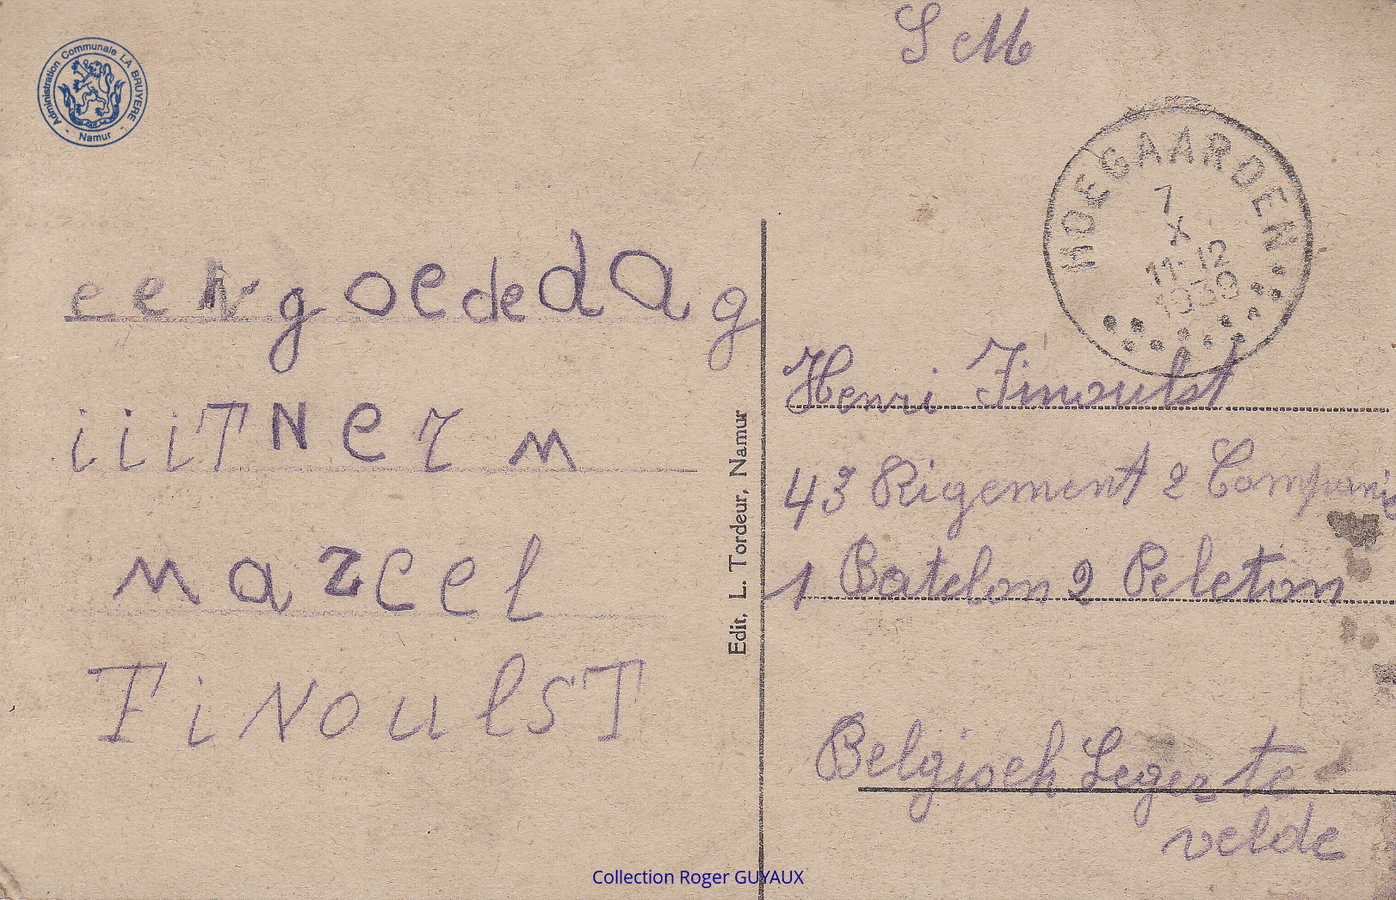 S M
Administration Communale LA BRUYERE
- Namur -
HOEGAARDEN
7
X
11-12
1939
een goede dag
iiiTNer m
marcel
FiNoulST
Edit. L. Tordeur, Namur
Henri Finoulst
43 Rigement 2 Compani
1 Batelon 2 Peleton
Belgisch Leger te
velde
Collection Roger GUYAUX